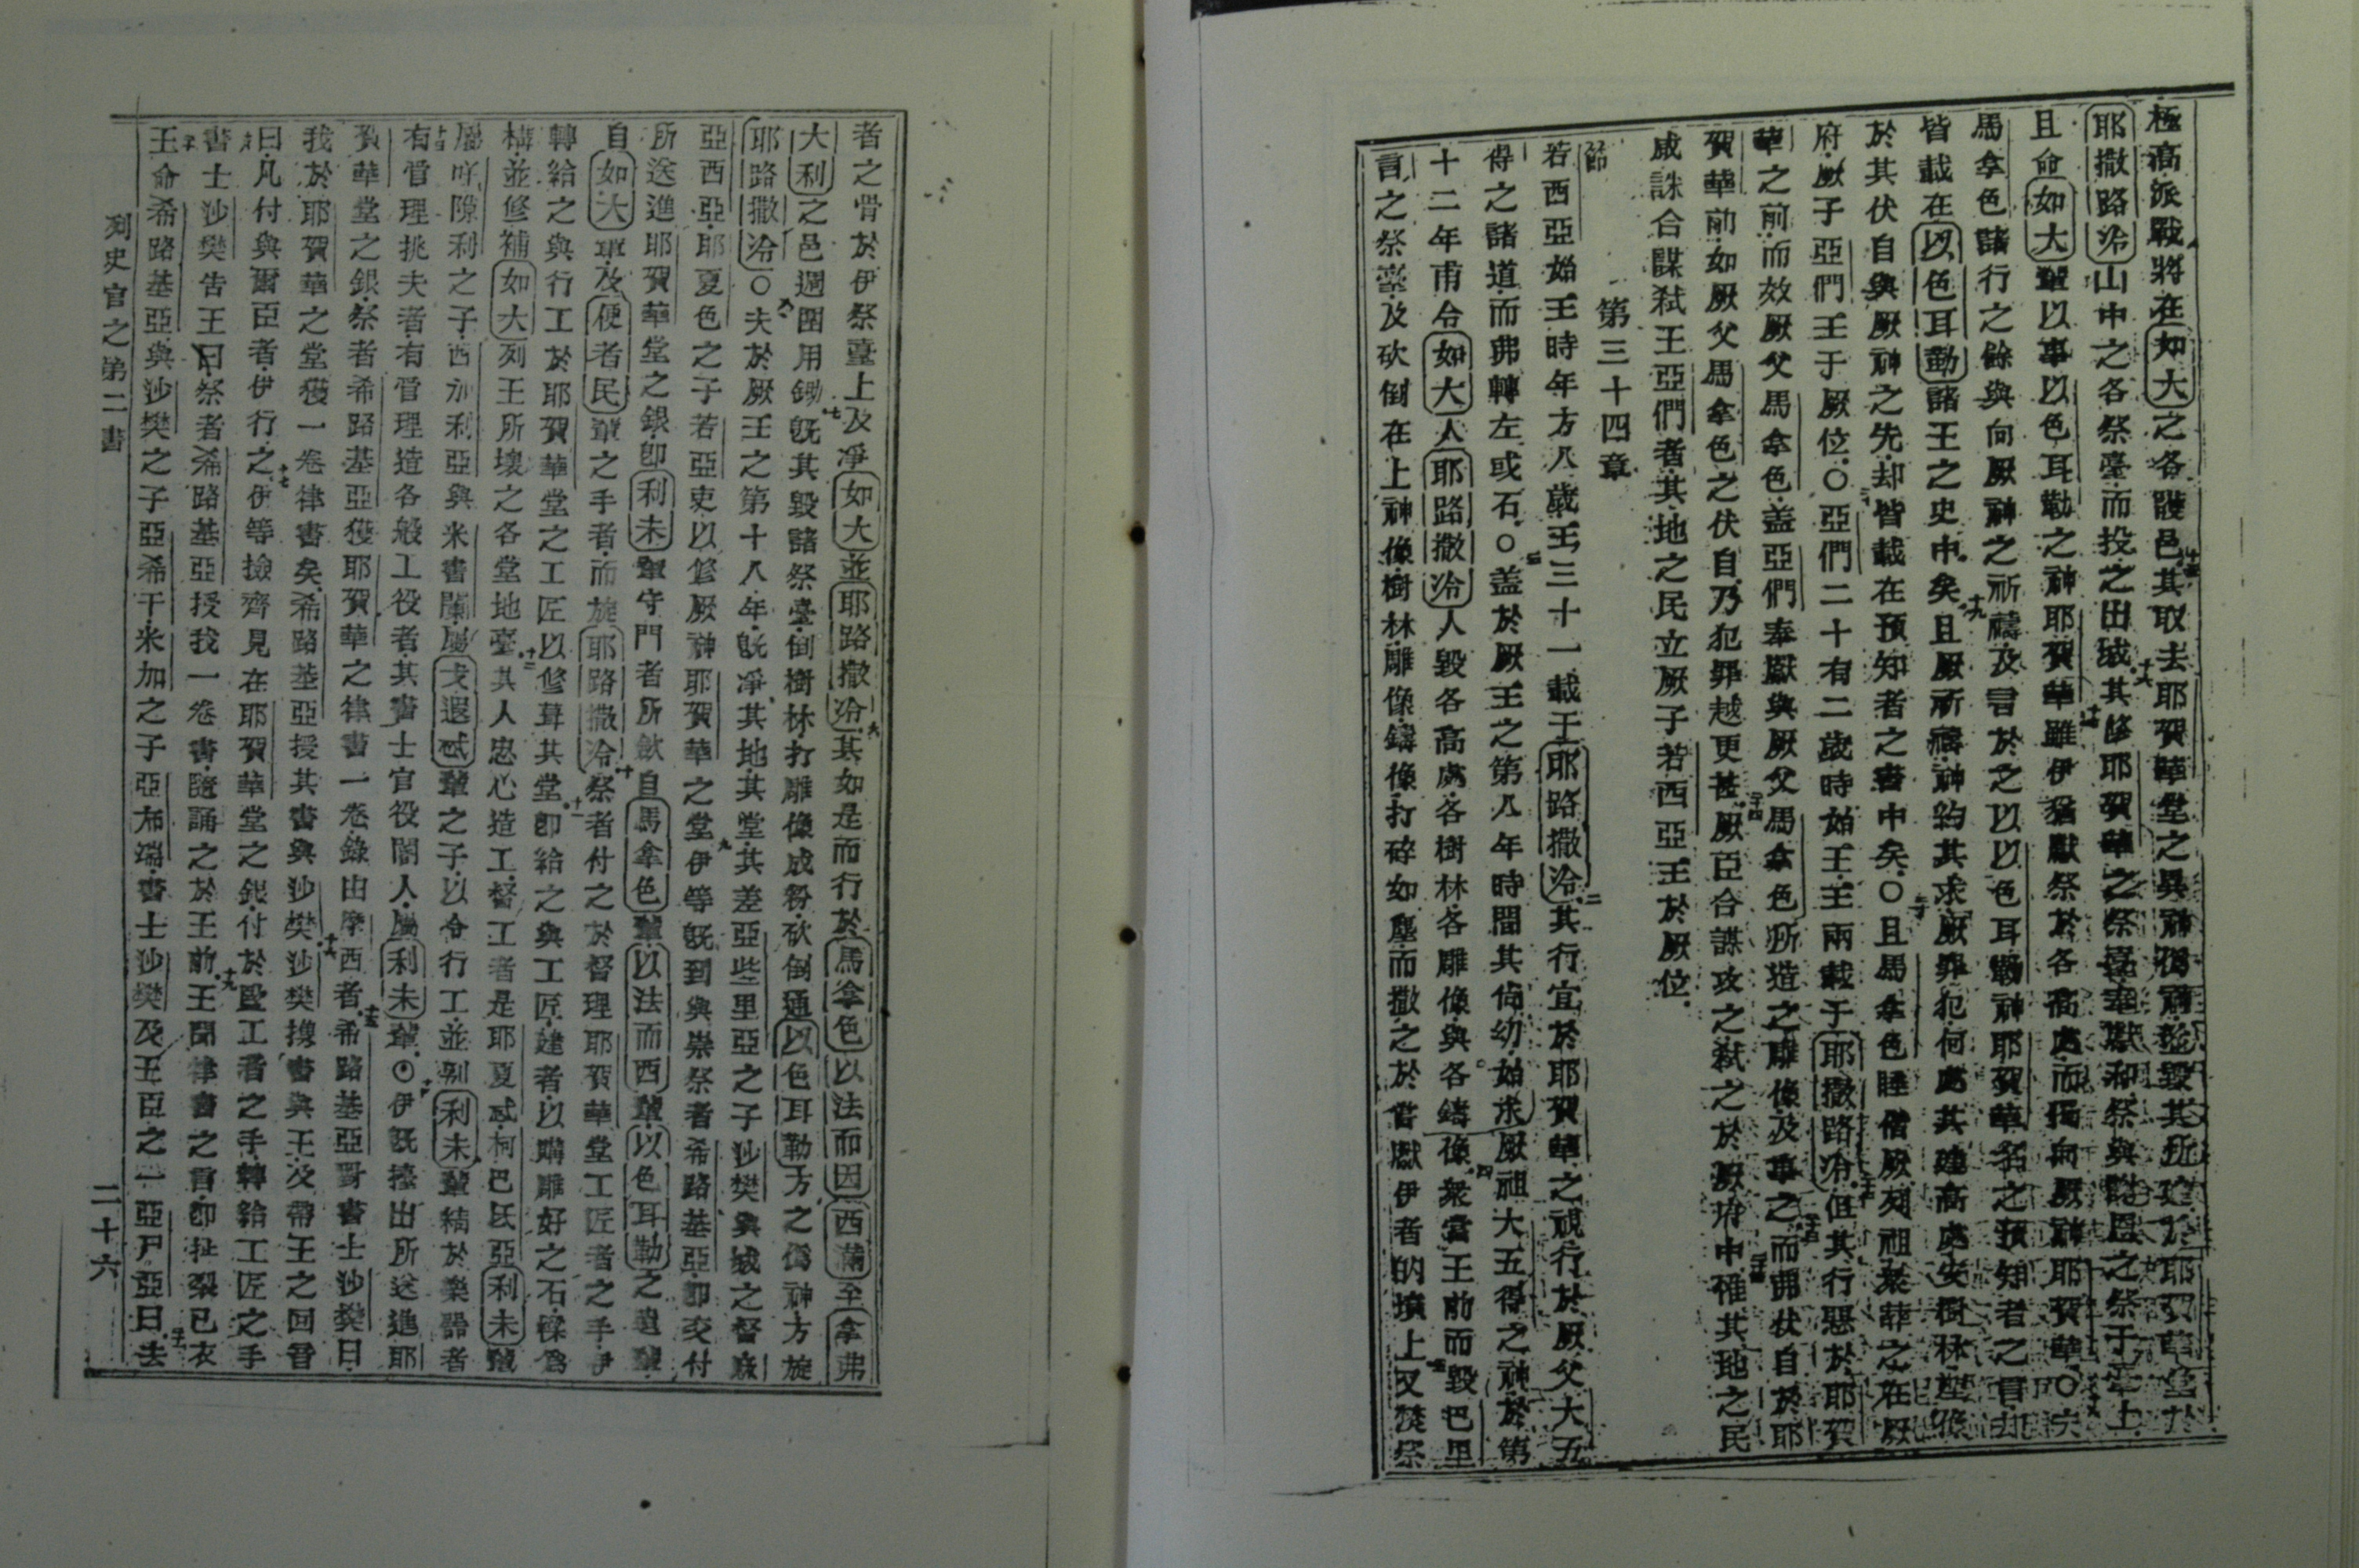 極高派戰將在如大之各護邑其取去耶賀華堂之異神獨並毀其所建於耶賀華堂於
耶撒路冷山中之各祭臺而投之出城其修耶賀華之祭臺奉獻和祭與謝恩之祭于臺上
且命如大輩以事以色耳勒之神耶賀華雖伊猶獻祭於各高處而獨向厥神耶賀華○夫
馬拿色諸行之餘與向厥神之祈禱及言於之以以色耳勒神耶賀華名之預知者之言
皆載在以色耳勒諸王之史中矣且厥所禱神約其求厥罪犯何處其建高處安樹林
於其伏自與厥神之先却皆載在預知者之書中矣○且馬拿色睡偕厥列祖葬之在厥
府厥子亞們王于厥位○亞們二十有二歲時始王王兩載于耶撒路冷但其行惡於耶賀
華之前而效厥父馬拿色蓋亞們奉獻與厥父馬拿色所造之雕像及事之而弗伏自於耶
賀華前如厥父馬拿色之伏自乃犯罪越更甚厥臣合謀攻之弑之於厥府中惟其地之民
咸誅合謀弑王亞們者其地之民立厥子若西亞王於厥位
第三十四章
節
若西亞始王時年方八歲王三十一載于耶路撒冷其行宜於耶賀華之視行於厥父大五
得之諸道而弗轉左或右○蓋於厥王之第八年時間其尚幼始求厥祖大五得之神於第
十二年甫令如大人耶路撒冷人毀各高處各樹林各雕像與各鑄像眾當王前而毀巴里
言之祭臺及砍倒在上神像樹林雕像鑄像打碎如塵而撒之於嘗獻伊者的墳上又焚祭
者之骨於伊祭臺上及凈如大並耶路撒冷其如是而行於馬拿色以法而因西滿至拿弗
大利之邑週圍用鋤旣其毀諸祭臺倒樹林打雕像成粉砍倒通以色耳勒方之偽神方旋
耶路撒冷○夫於厥王之第十八年旣凈其地其堂其差亞些里亞之子沙樊與城之督
亞西亞耶夏色之子若亞吏以修厥神耶賀華之堂伊等旣到與崇祭者希路基亞卽交付
所送進耶賀華堂之銀卽利未輩守門者所斂自馬拿色輩以法而西輩以色耳勒之遺輩
自如大輩及便者民輩之手者而旋耶路撒冷祭者付之於督理耶賀華堂工匠者之手伊
轉給之與行工於耶賀華堂之工匠以修葺其堂卽給之與工匠建者以購雕好之石樑爲
構並修補如大列王所壞之各堂地臺其人忠心造工督工者是耶夏忒柯巴氏亞利未輩
屬咩隙利之子西加利亞與米書闌屬戈遐忒輩之子以令行工並別利未輩精於樂器者
有管理挑夫者有管理造各般工役者其書士官役閽人屬利未輩○伊旣擡出所送進耶
賀華堂之銀祭者希路基亞獲耶賀華之律書一卷錄由摩西者希路基亞對書士沙樊曰
我於耶賀華之堂獲一卷律書矣希路基亞授其書與沙樊沙樊携書與王及帶王之回音
曰凡付與爾臣者伊行之伊等撿齊見在耶賀華堂之銀付於監工者之手轉給工匠之手
書士沙樊吿王曰祭者希路基亞授我一卷書隨誦之於王前王聞律書之言卽扯裂已衣
王命希路基亞與沙樊之子亞希干米加之子亞布端書士沙樊及王臣之一亞尸亞曰去
列史官之第二書
二十六